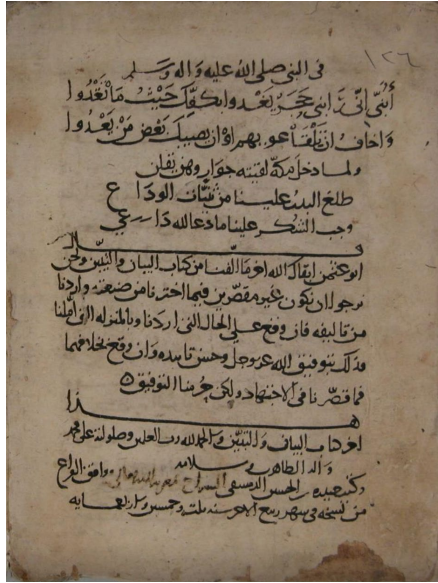 ١٢٦
في النبي صلى الله عليه واله وسلم
حيث ما تغدوا
واخاف ان تلقنا بعض من يغدوا
ولما دخل مكة لقيته جوار وهن يقلن
طلع البدر علينا من ثنيات الوداع
وجب الشكر علينا ما دعا لله داعي
قال
ابو عثمن ابقاك الله اخر ما الفنا من كتاب البيان والتبيين ونحن
نرجوا ان نكون غير مقصرين فيما اخترنا من صنعته واردنا
من تاليفه فان وقع على الحال التي اردنا وبالمنزلة التي املنا
فذلك بتوفيق الله عز وجل وحسن تاييده وان وقع بخلافهما
فما قصرنا في الاجتهاد ولكن حرمنا التوفيق
هذا
اخر كتاب البيان والتبيين والحمد لله رب العلمين وصلواته على محمد
واله الطاهرين وسلامه
وكتب الحسن وافق الفراغ
من نسخه في شهر ربيع الاخر سنة ثلث وخمسين